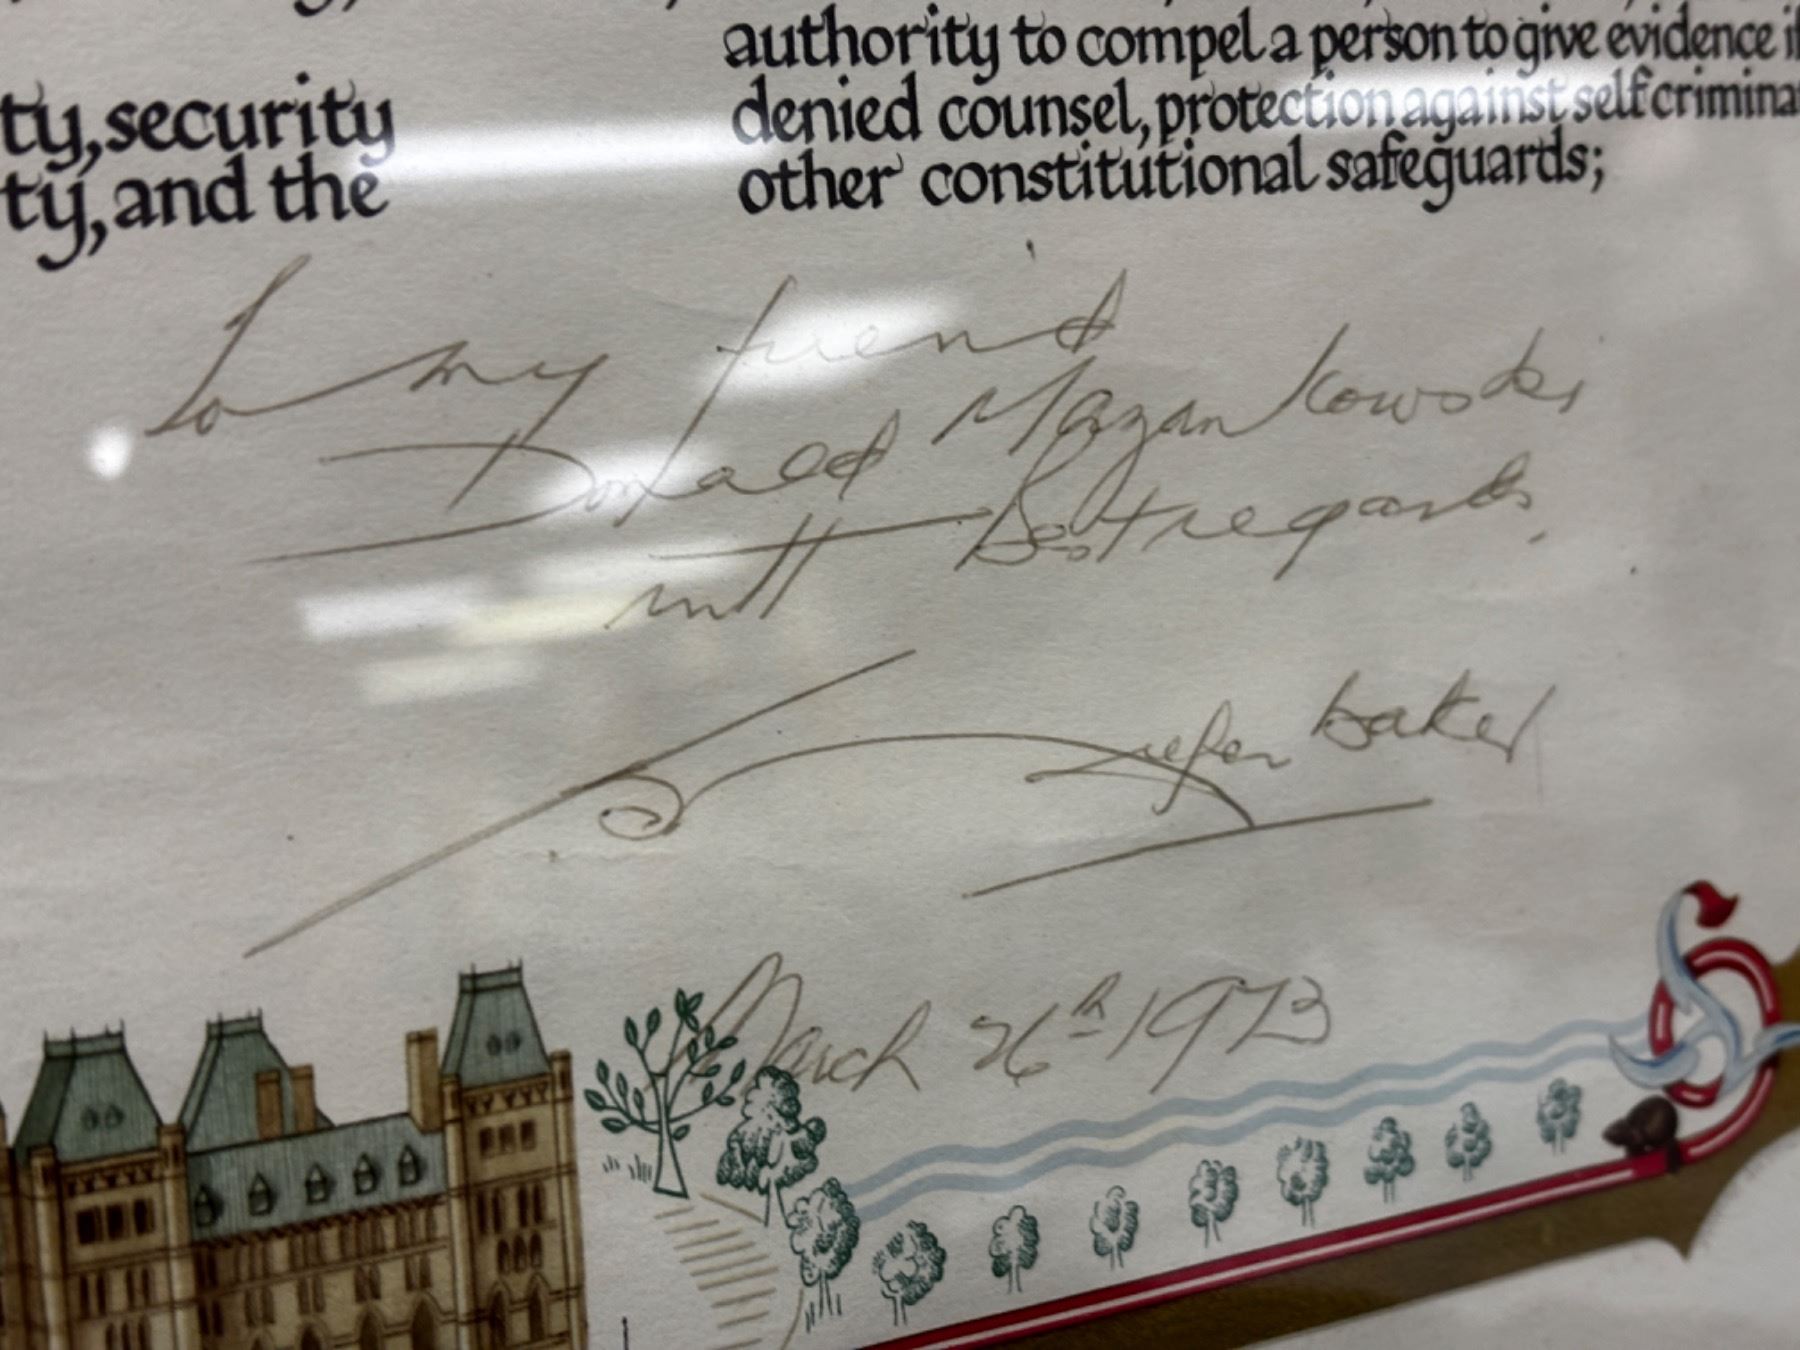 ty, security
ty, and the
authority to compel a person to give evidence if
denied counsel, protection against self crimina
other constitutional safeguards;
To my friend
Donald Mazankowski
with Best regards.
Diefenbaker
March 26th 1973